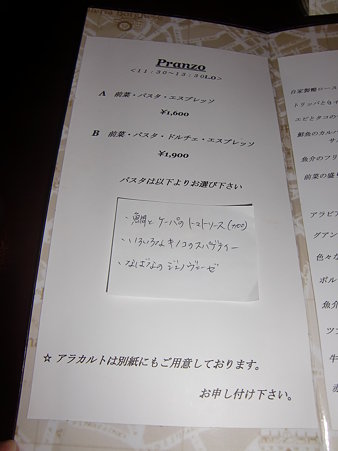 Pranzo
<11:30~13:30LO>
A 前菜・パスタ・エスプレッソ
¥1,600
B 前菜・パスタ・ドルチェ・エスプレッソ
¥1,900
パスタは以下よりお選び下さい
・魚介とケーパのトマトソース
・いろいろなキノコのスパゲティー
・なばなのジェノヴェーゼ
☆ アラカルトは別紙にもご用意しております。
お申し付け下さい。
自家製鴨ロース
トリッパと
エビとタコの
鮮魚のカルパ
サ
魚介のフリ
前菜の盛り
アラビア
グアン
色々な
ボル
魚介
ツ
牛